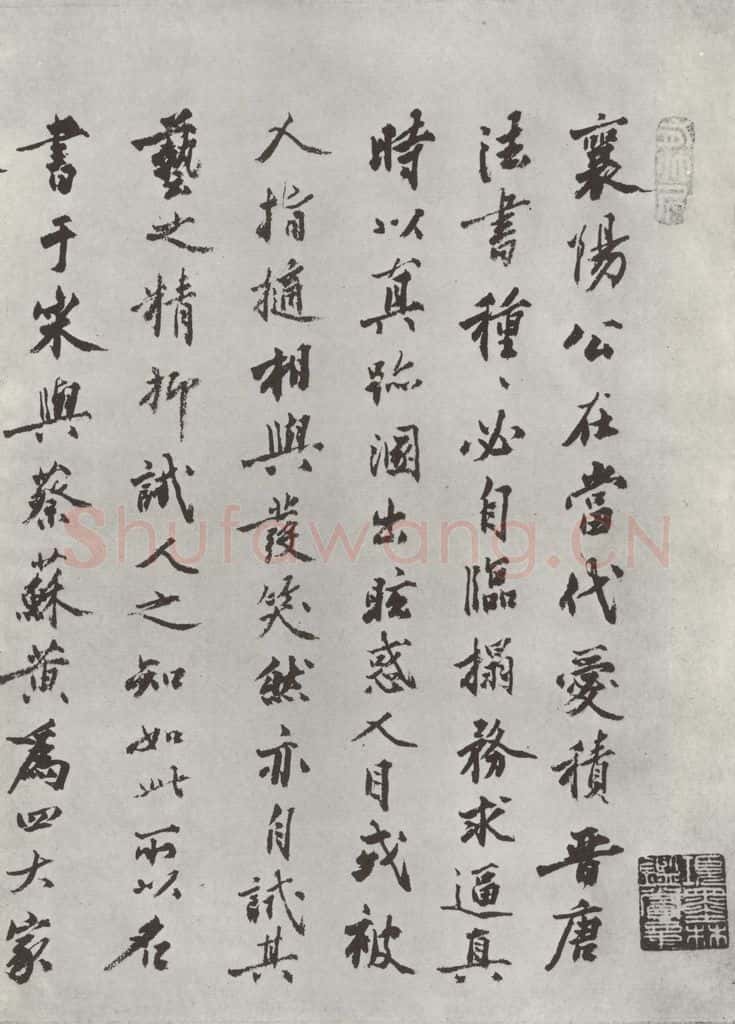 襄陽公在當代愛積晋唐
法書種〻必自臨搨務求逼真
時以真跡溷出眩惑人目或被
人指擿相與發笑然亦自試其
藝之精抑試人之知如此所以名
書于宋與蔡蘇黃爲四大家
Shufawang.CN